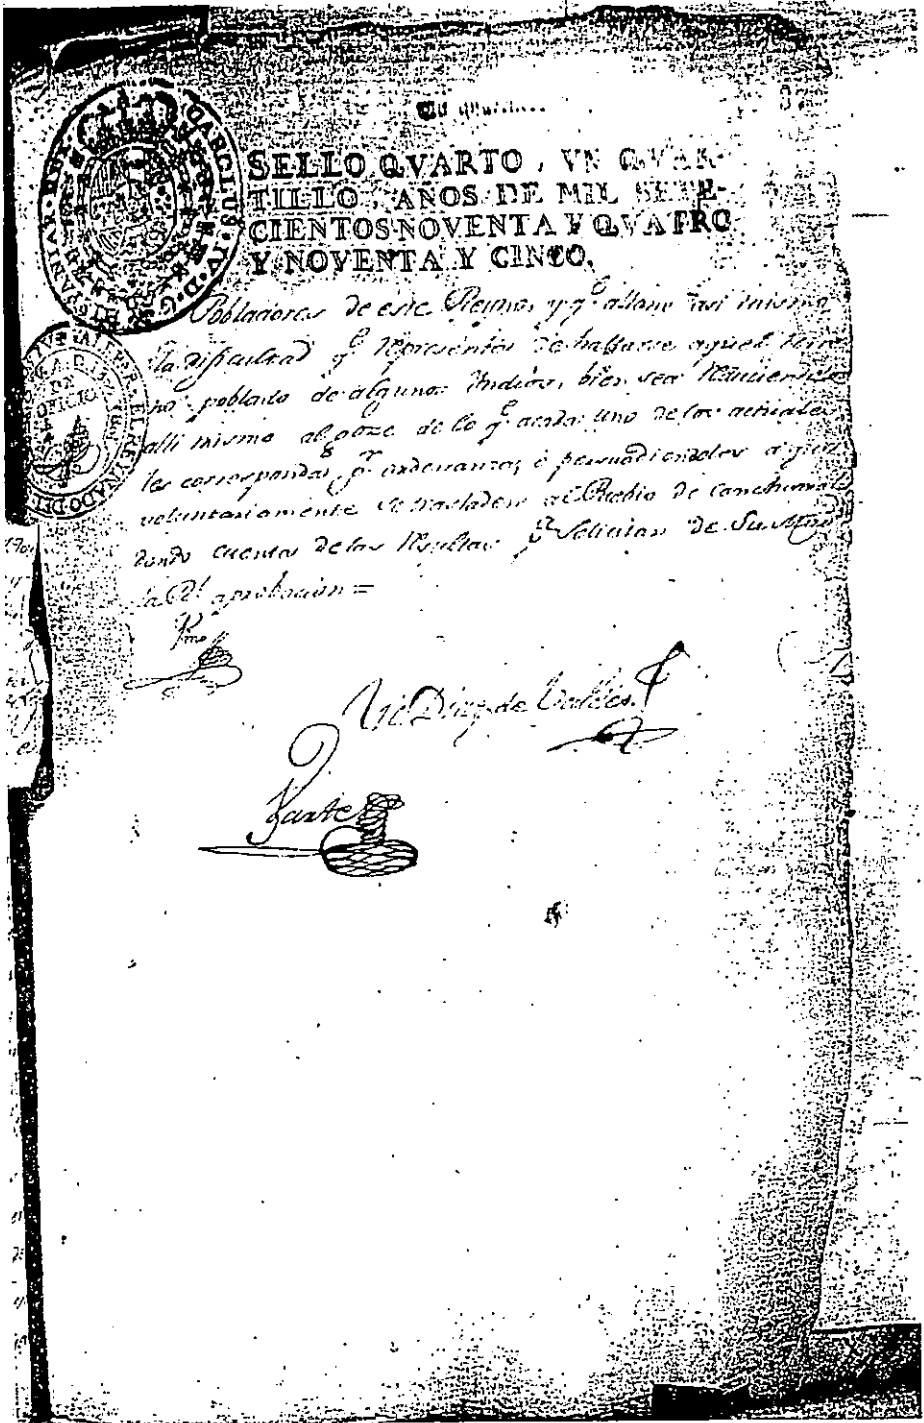 SELLO QVARTO, VN QVAR-
TILLO, AÑOS DE MIL SETE-
CIENTOS NOVENTA Y QVATRO
Y NOVENTA Y CINCO.
Pobladores de este Reyno, y q.e allane asi mismo
la dificultad q.e representa de hallarse aquel
no poblado de algunos Yndios, bien sea
alli mismo al goze de lo q.e acada uno de los actuales
les corresponda p.r ordenanza, ó persuadiendoles a que
voluntariamente se trasladen al Pueblo de
dando cuenta de las resultas p.a Solicitar de Su Mag.d
la R.l aprobacion =
Diaz de Valdés
Ugarte